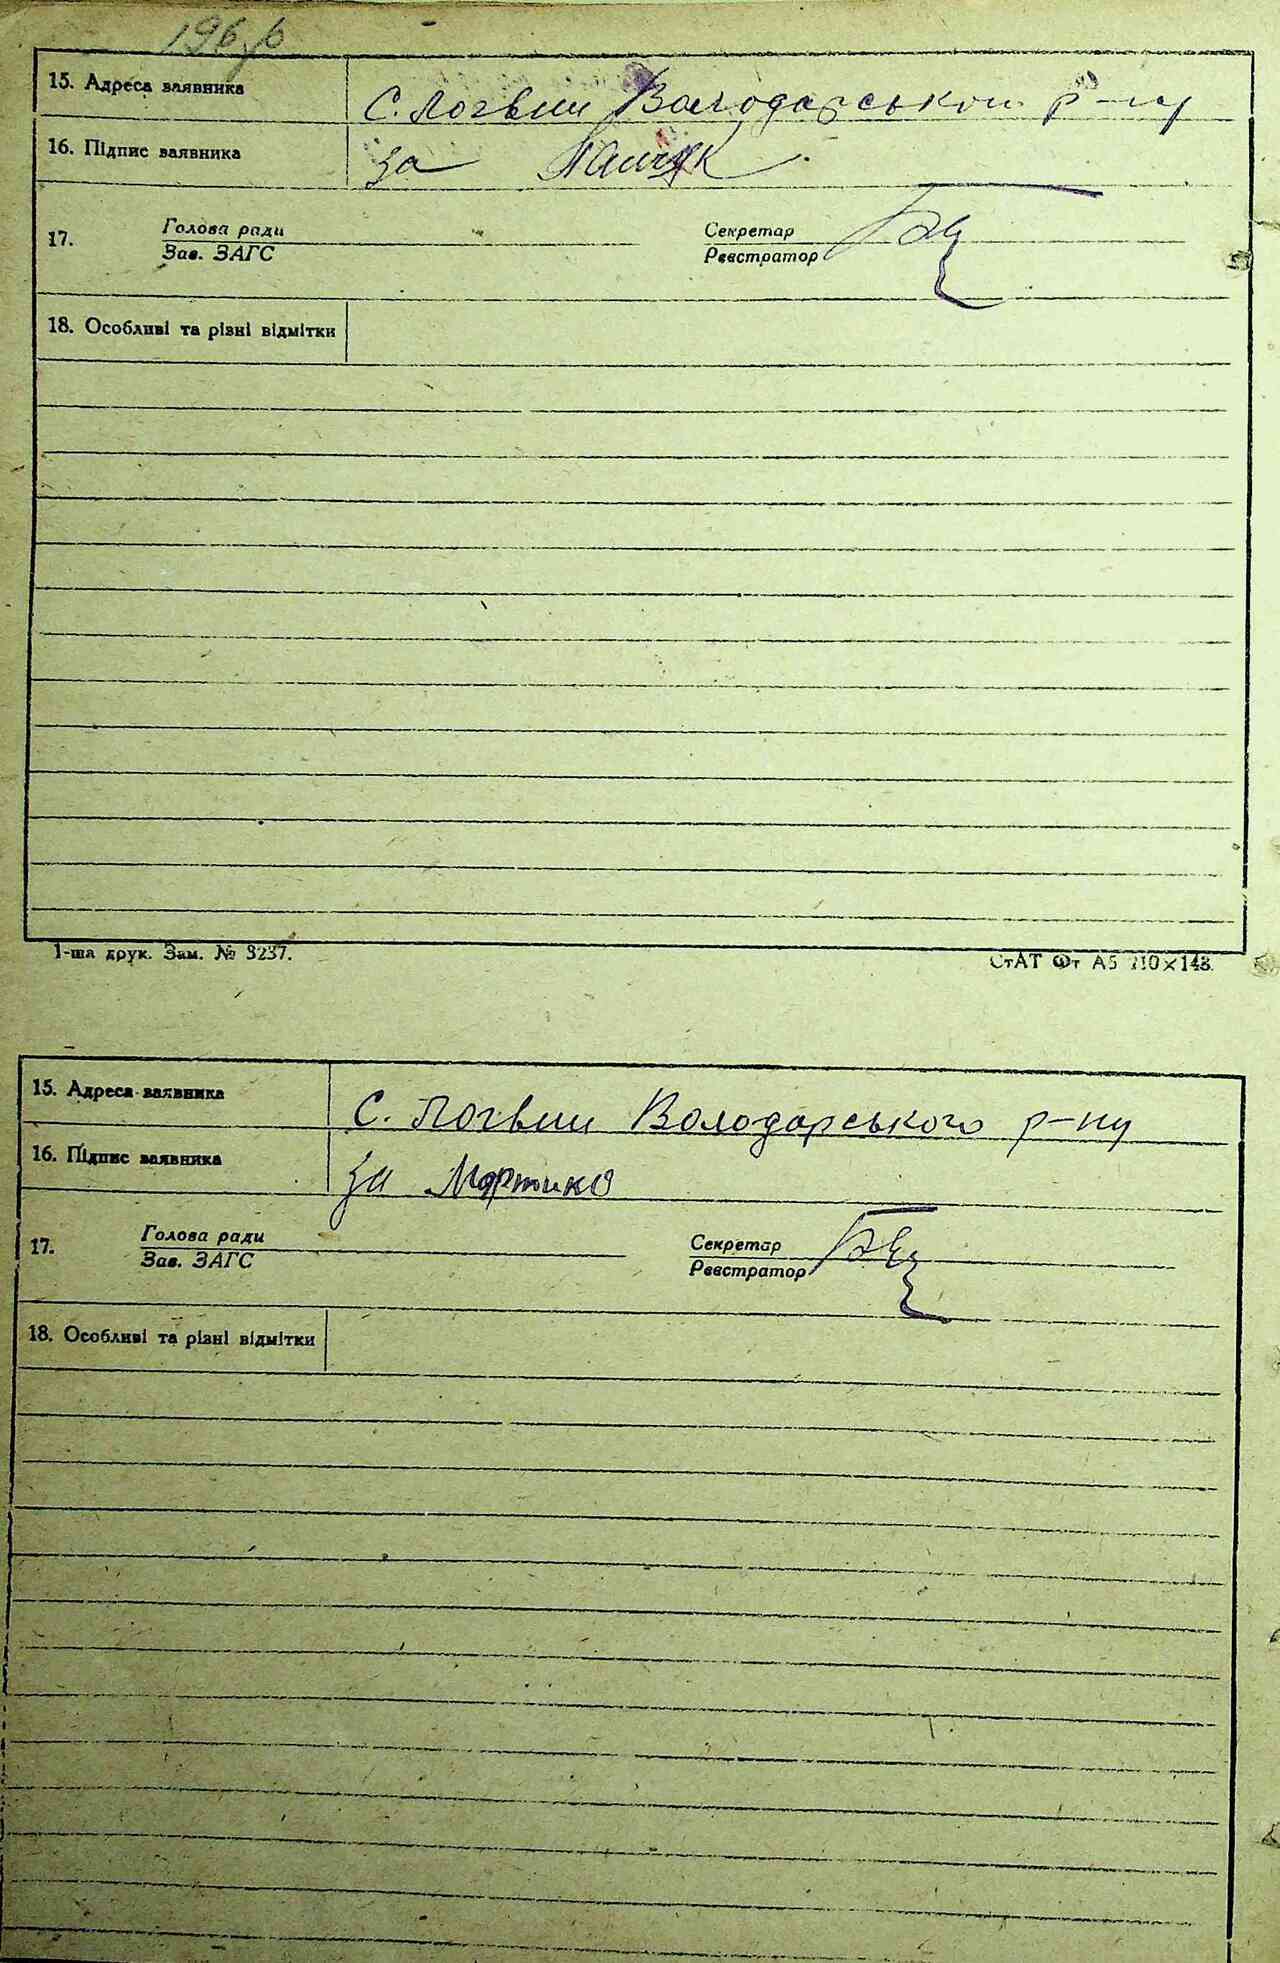 15. Адреса заявника
С. Логвин Володарського р-ну
16. Підпис заявника
за
17.
Голова ради
Зав. ЗАГС
Секретар
Реєстратор
18. Особливі та різні відмітки
1-ша друк. Зам. № 3237.
СтАТ Фт А5 210×148.
15. Адреса заявника
С. Логвин Володарського р-ну
16. Підпис заявника
за Мартико
17.
Голова ради
Зав. ЗАГС
Секретар
Реєстратор
18. Особливі та різні відмітки